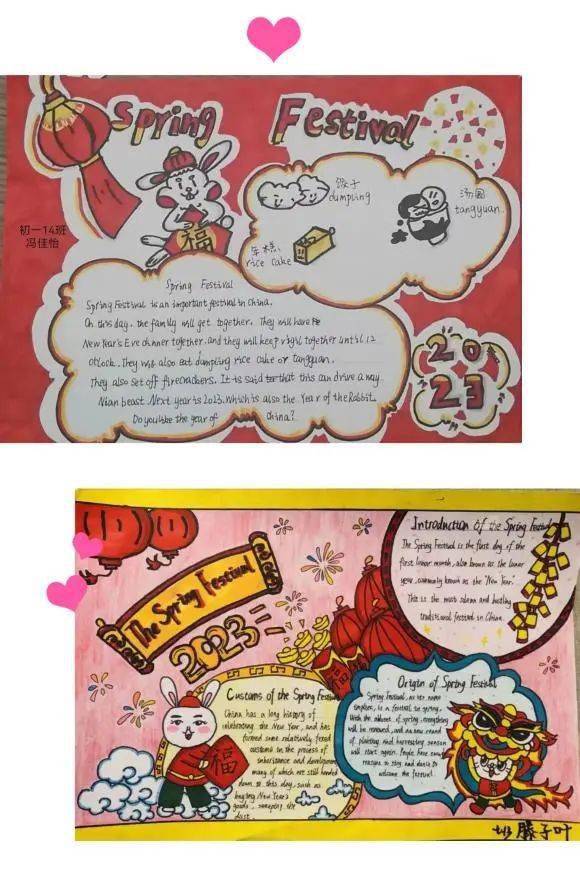 Spring Festival
饺子
dumpling
汤圆
tangyuan
年糕
rice cake
初一14班
冯佳怡
福
Spring Festival
Spring Festival is an important festival in China.
On this day, the family will get together. They will have
New Year's Eve dinner together, and they will keep vigil together until 12
o'clock. They will also eat dumpling rice cake or tangyuan.
They also set off firecrackers. It is said that this can drive away
Nian beast. Next year is 2023. Which is also the Year of the Rabbit.
Do you like the year of China?
20
23
The Spring Festival
2023
Introduction of the Spring Festival
The Spring Festival is the first day of the
first lunar month, also known as the lunar
year, commonly known as the "New Year".
This is the most solemn and bustling
traditional festival in China.
福
Customs of the Spring Festival
China has a long history of
celebrating the New Year, and has
formed some relatively fixed
customs in the process of
inheritance and development
many of which are still handed
down to this day, such as
buying New Year's
goods, sweeping the
dust.
福
Origin of Spring Festival
Spring Festival, as its name
implies, is a festival in spring.
With the advent of spring, everything
will be renewed, and a new round
of planting and harvesting season
will start again. People have enough
reasons to sing and dance to
welcome the festival.
七班 滕子叶